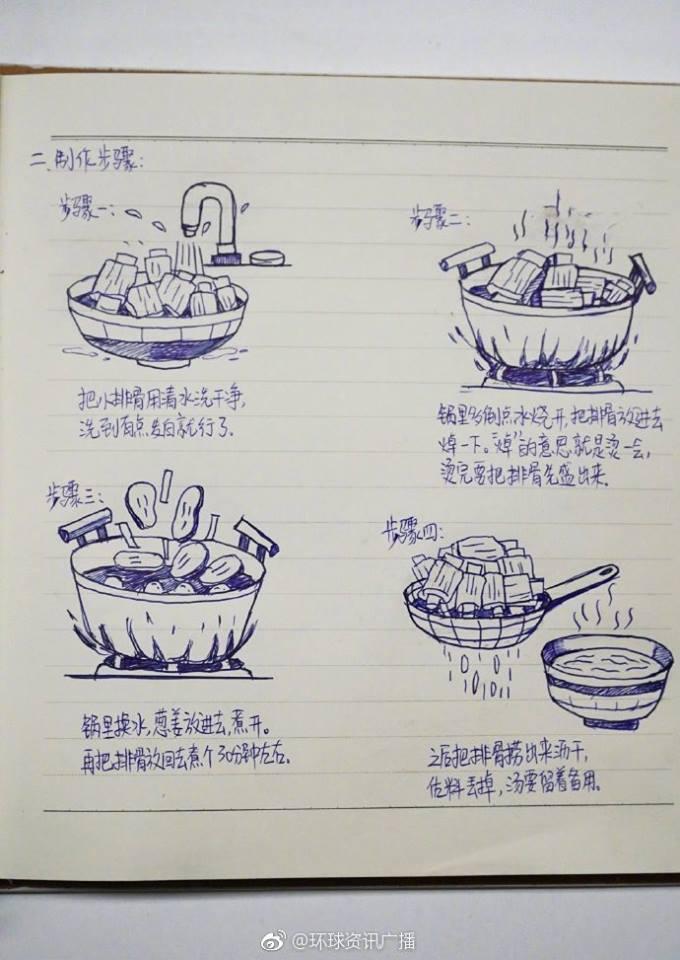 二、制作步骤:
步骤一:
把小排骨用清水洗干净,
洗到有点发白就行了.
步骤二:
锅里多倒点水烧开,把排骨放进去
焯一下。“焯”的意思就是烫一会,
烫完要把排骨先盛出来.
步骤三:
锅里换水,葱姜放进去,煮开。
再把排骨放回去煮个30分钟左右.
步骤四:
之后把排骨捞出来沥干,
佐料丢掉,汤要留着备用。
@环球资讯广播